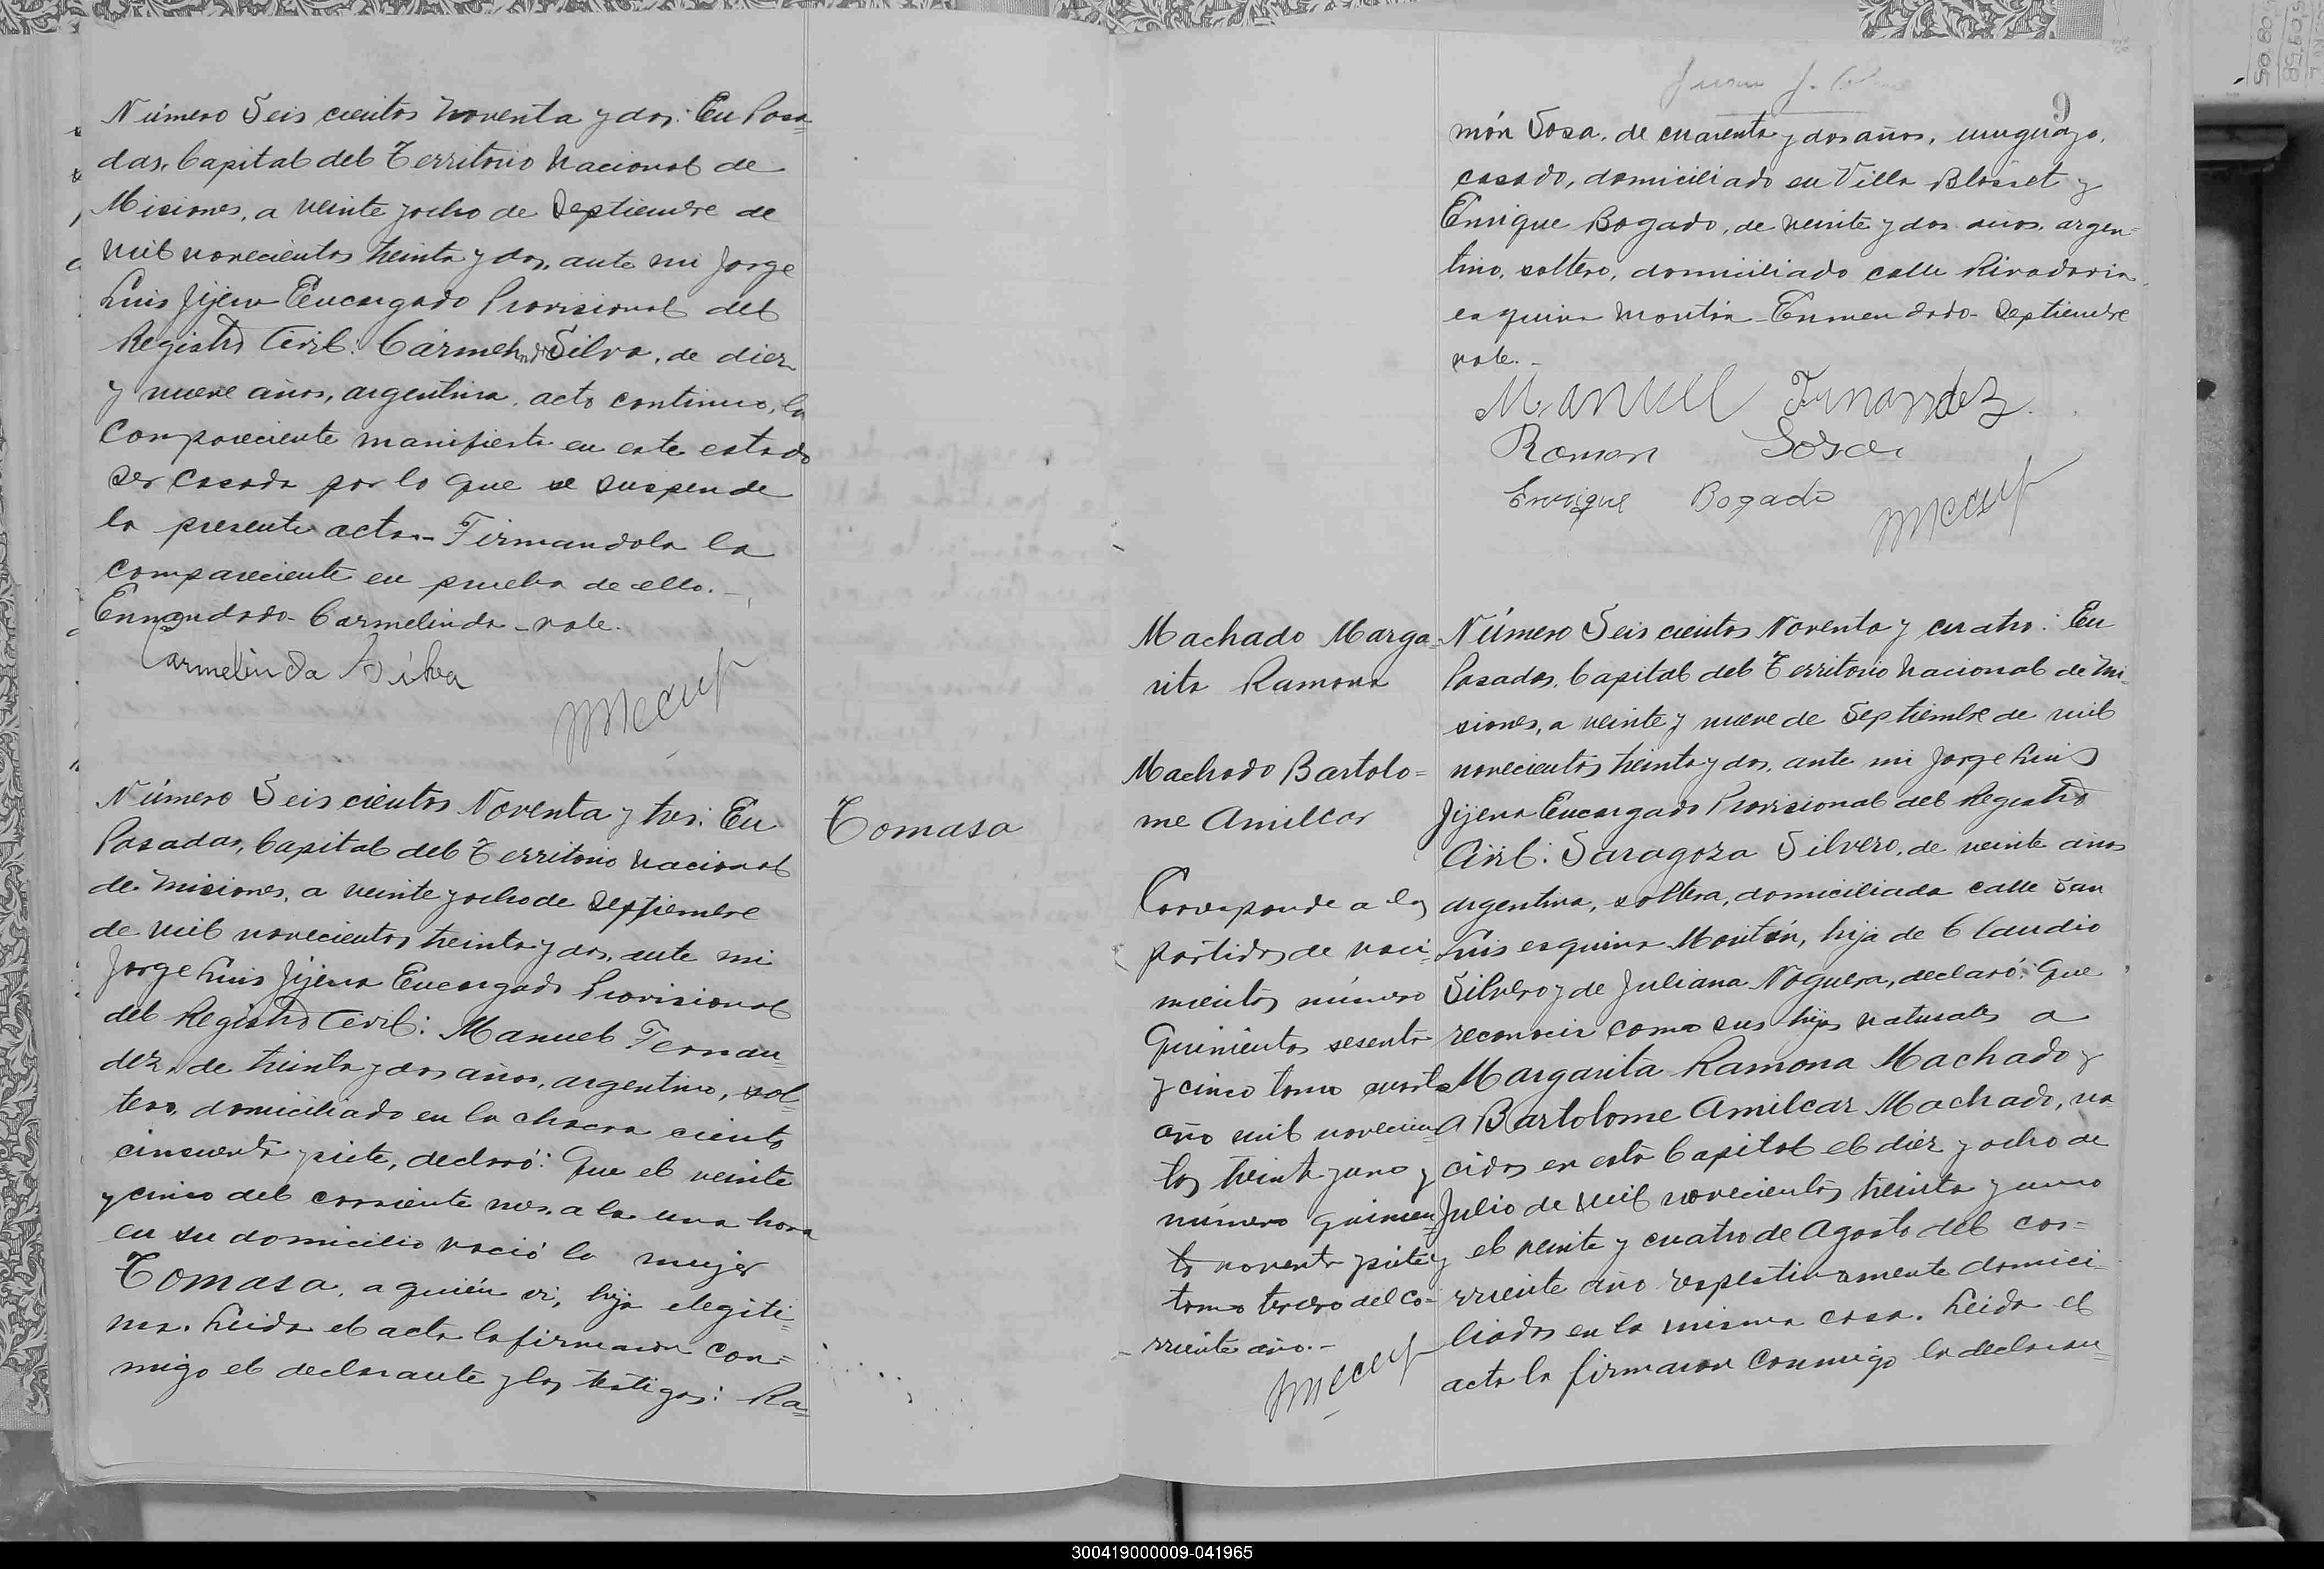 Número Seis cientos Noventa y dos: En Posa=
das, Capital del Territorio Nacional de
Misiones, a veinte y ocho de Septiembre de
mil novecientos treinta y dos, ante mi Jorge
Luis Jijena Encargado Provisional del
Registro Civil: Carmelinda Silva, de diez
y nueve años, argentina, acto continuo, la
compareciente manifiesta en este estado
ser casada por lo que se suspende
la presente acta.- Firmandola la
compareciente en prueba de ello.-
Enmendado- Carmelinda- vale.
Carmelinda Silva
Número Seis cientos Noventa y tres: En
Posadas, Capital del Territorio Nacional
de Misiones, a veinte y ocho de Septiembre
de mil novecientos treinta y dos, ante mi
Jorge Luis Jijena Encargado Provisional
del Registro Civil: Manuel Fernan=
dez, de treinta y dos años, argentino, sol=
tero, domiciliado en la chacra ciento
cincuenta y siete, declaró: Que el veinte
y cinco del corriente mes, a la una hora
en su domicilio nació la mujer
Tomasa, a quién vi, hija elegiti=
ma. Leida el acta la firmaron con=
migo el declarante y los testigos: Ra=
Tomasa
9
món Sosa, de cuarenta y dos años, uruguayo,
casado, domiciliado en Villa Blosset y
Enrique Bogado, de veinte y dos años, argen=
tino, soltero, domiciliado calle Rivadavia
esquina Montin- Enmendado- Septiembre
vale.-
Manuel Fernandez
Ramon Sosa
Enrique Bogado
Machado Marga=
rita Ramona
Machado Bartolo=
me Amilcar
Corresponde a las
partidas de naci=
mientos número
Quinientos sesenta
y cinco tomo cuarto
año mil novecien=
tos treinta y uno y
número quinien=
to noventa y siete
tomo tercero del co=
rriente año.-
Número Seis cientos Noventa y cuatro: En
Posadas, Capital del Territorio Nacional de Mi=
siones, a veinte y nueve de Septiembre de mil
novecientos treinta y dos, ante mi Jorge Luis
Jijena Encargado Provisional del Registro
Civil: Saragoza Silvero, de veinte años
argentina, soltera, domiciliada calle San
Luis esquina Montin, hija de Claudio
Silvero y de Juliana Noguera, declaró: Que
reconocia como sus hijos naturales a
Margarita Ramona Machado y
a Bartolome Amilcar Machado, na
cidos en esta Capital el diez y ocho de
Julio de mil novecientos treinta y uno
y el veinte y cuatro de Agosto del co=
rriente año respectivamente domici=
liados en la misma casa. Leida el
acta la firmaron conmigo la declaran=
300419000009-041965